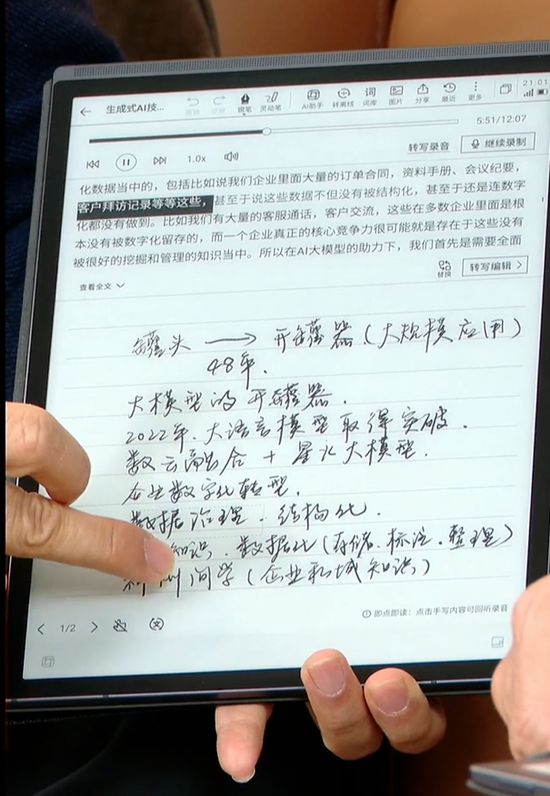 21:01
生成式AI技...
钢笔 灵动笔 AI助手 转离线 词库 图片 分享 最近 更多
5:51/12:07
转写录音 继续录制
1.0x
化数据当中的，包括比如说我们企业里面大量的订单合同，资料手册、会议纪要，
客户拜访记录等等这些，甚至于说这些数据不但没有被结构化，甚至于还是连数字
化都没有做到。比如我们有大量的客服通话，客户交流，这些在多数企业里面是根
本没有被数字化留存的，而一个企业真正的核心竞争力很可能就是存在于这些没有
被很好的挖掘和管理的知识当中。所以在AI大模型的助力下，我们首先是需要全面
查看全文 替换 转写编辑 >
罐头 → 开罐器（大规模应用）
48年.
大模型的开罐器.
2022年.大语言模型取得突破.
数云融合 + 星火大模型.
企业数字化转型.
数据治理.结构化.
知识.数据化（存储.标注.整理）
问学（企业私域知识）
即点即读：点击手写内容可回听录音
< 1/2 >